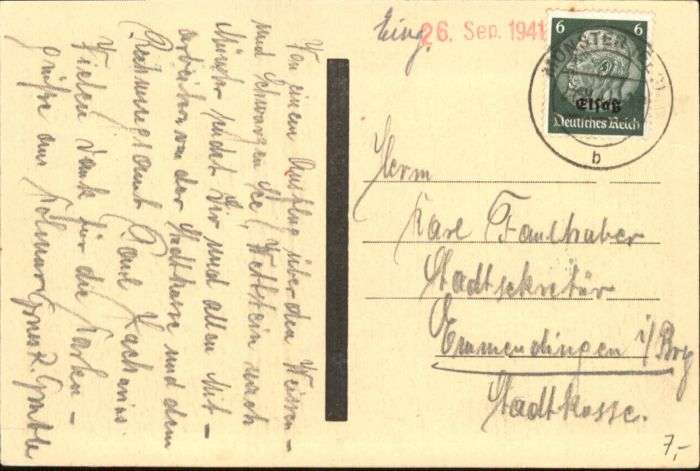 Von einem Ausflug über den Weissen-
und Schwarzen See, Wettstein nach
Münster sendet Dir und allen Mit-
arbeitern von der Stadtkasse und dem
Rechnungsamt Paul Zacharias
Vielen Dank für die Karten -
Grüße aus Kolmar
Eing.
26. Sep. 1941
6 6
Elsaß
Deutsches Reich
MÜNSTER
b
Herrn
Karl Faulhaber
Stadtsekretär
Emmendingen i/Brg
Stadtkasse.
7,-